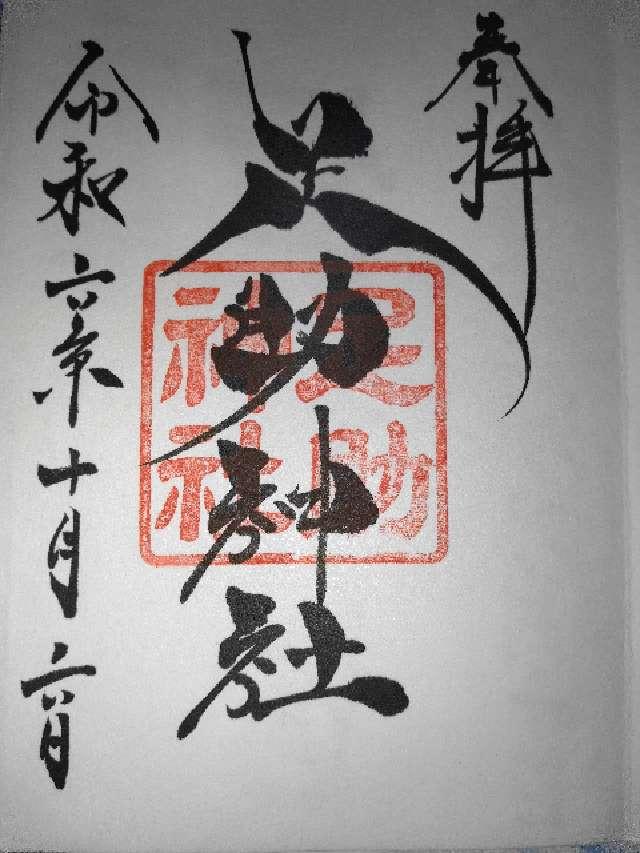 奉拝
足助神社
足助
神社
令和六年十月六日